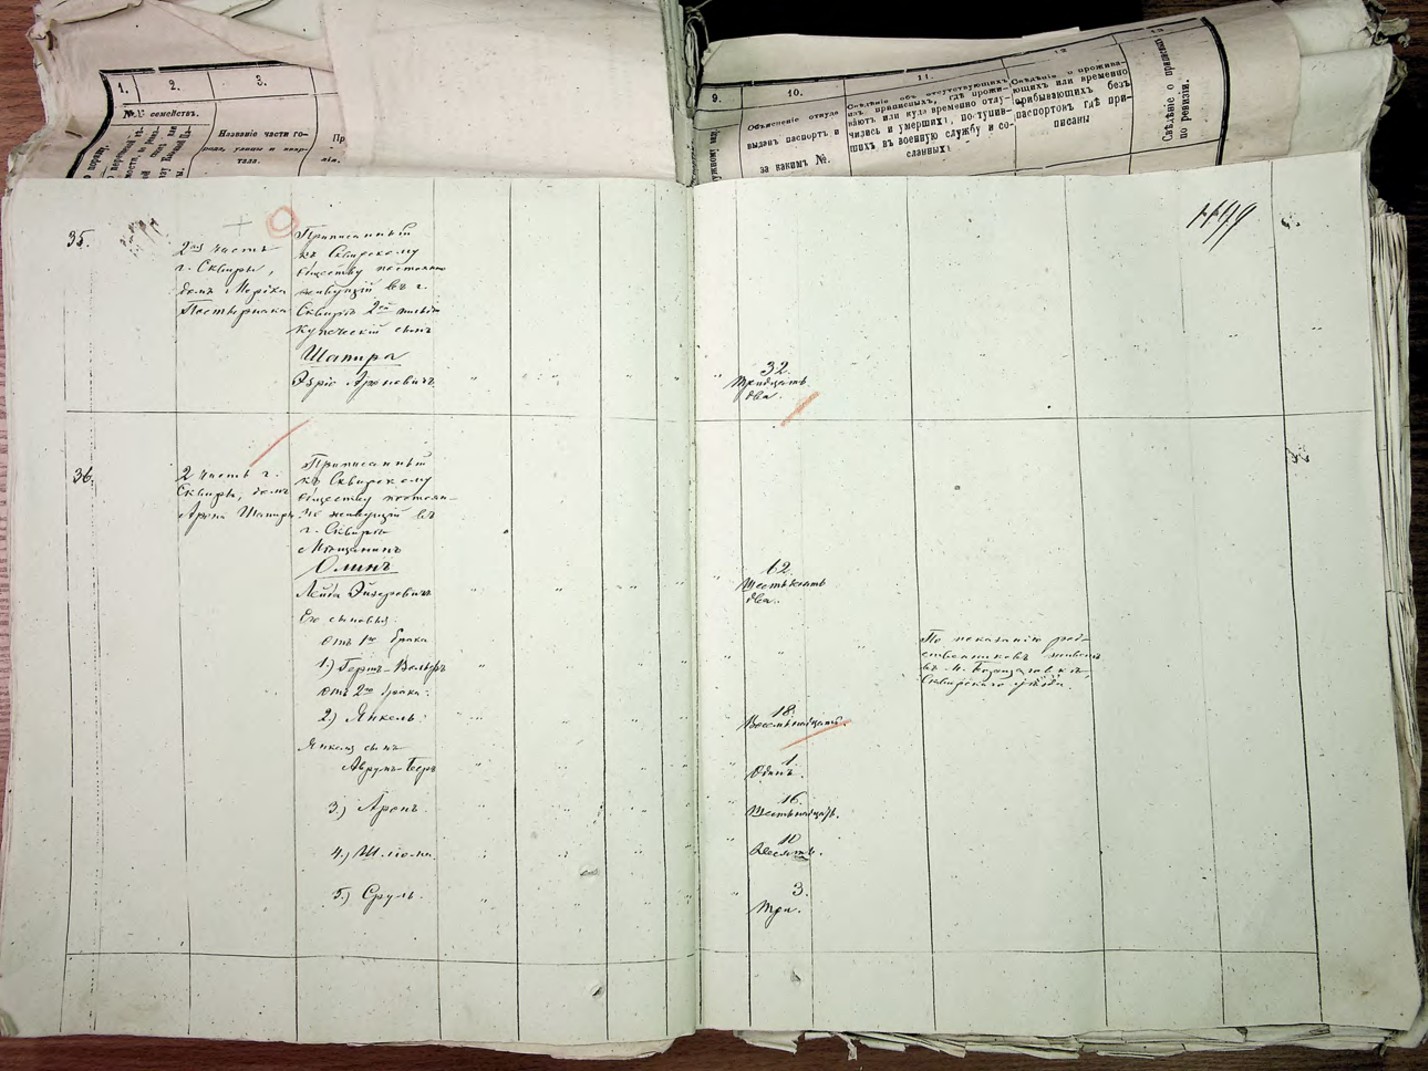 1.
2.
3.
№№ семействъ.
Названіе части го-
рода, улицы и квар-
тала.
9.
10.
11.
12
Объясненіе откуда
выданъ паспортъ и
за какимъ №.
Свѣдѣнія объ отсутствующихъ
изъ приписныхъ, гдѣ прожи-
ваютъ или куда временно отлу-
чились и умершихъ, поступив-
шихъ въ военную службу и со-
сланныхъ
Свѣдѣнія о прожива-
ющихъ или временно
пребывающихъ безъ
паспортовъ гдѣ при-
писаны
Свѣдѣніе о припискѣ
по ревизіи.
35.
2ая часть
г. Сквиры,
домъ
Пастернака
Приписанный
къ Сквирскому
обществу постоянно
живущій въ г.
Сквирѣ 2ой гильдіи
купеческій сынъ
Шапиро
Ароновичъ.
32.
тридцать
два.
1149
36.
2 часть г.
Сквиры, домъ
Арона Шапиры
Приписанный
къ Сквирскому
обществу постоян-
но живущій въ
г. Сквирѣ
Мѣщанинъ
Олинъ
Лейба
Его сыновья:
отъ 1го брака
1.) Герш-Вольфъ
отъ 2го брака:
2.) Янкель.
Янкеля сынъ
Аврумъ-Беръ
3.) Аронъ.
4.) Шлиома.
5.) Сруль.
62.
Шестьдесятъ
два.
18.
Восемнадцать.
1.
Одинъ.
16.
Шестнадцать.
10
Десять.
3.
три.
По показанію род-
ственниковъ живетъ
въ м.
Сквирскаго уѣзда.